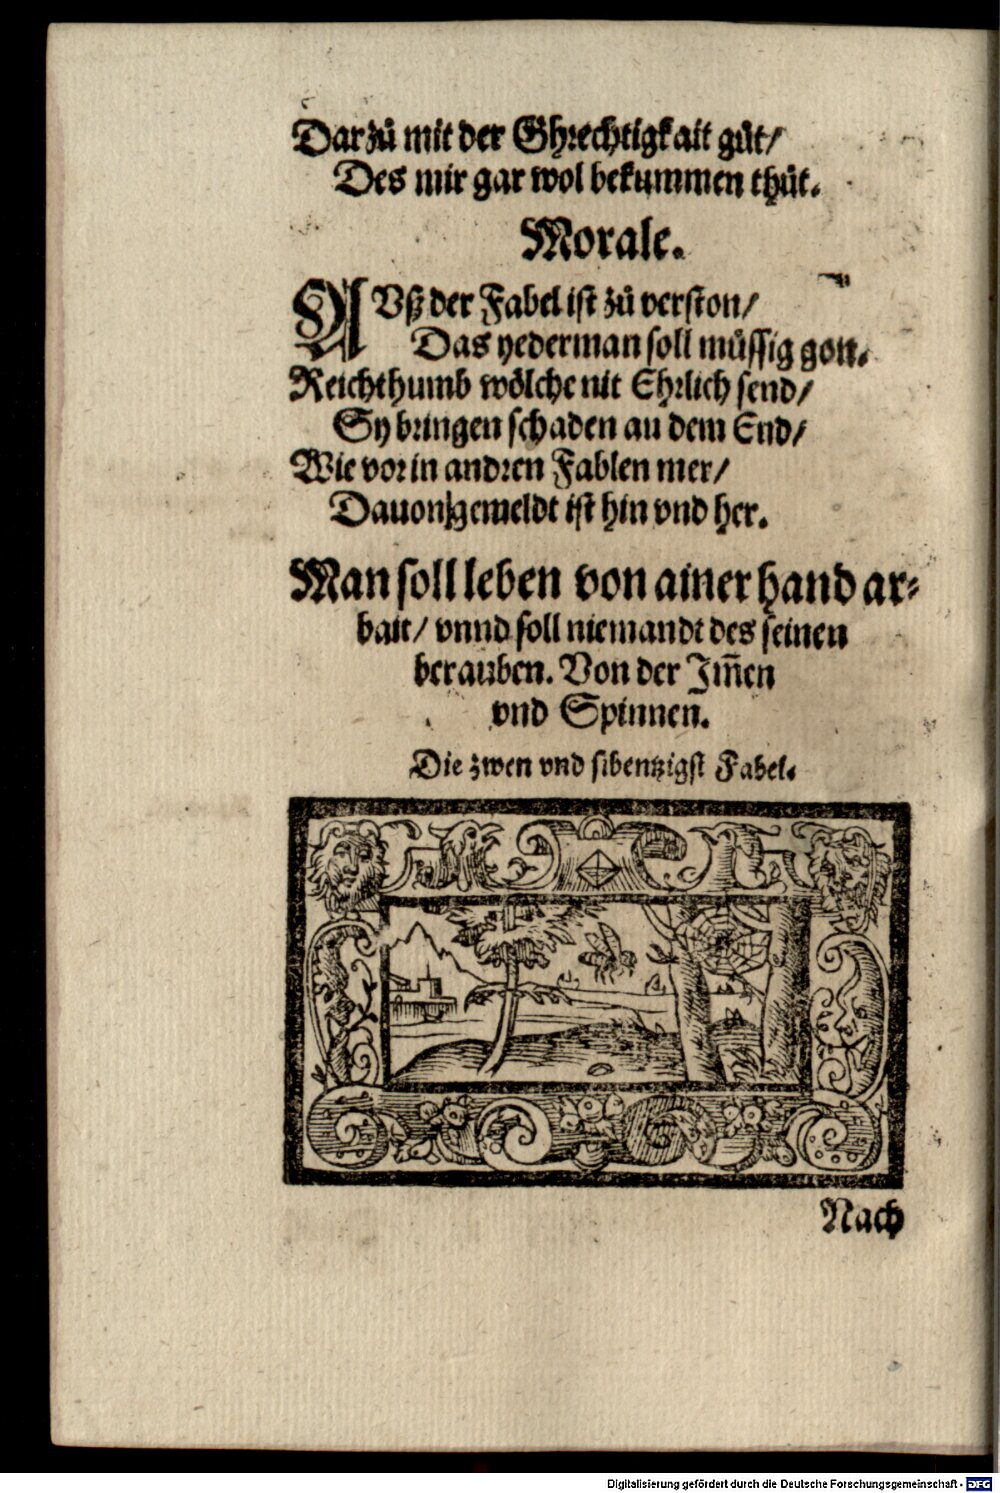 Darzů mit der Ghrechtigkait gůt/
Des mir gar wol bekummen thůt.
Morale.
AVß der Fabel ist zů verston/
Das yederman soll müssig gon.
Reichthumb wölche nit Ehrlich send/
Sy bringen schaden an dem End/
Wie vor in andren Fablen mer/
Dauon gemeldt ist hin vnd her.
Man soll leben von ainer hand ar⸗
bait/ vnnd soll niemandt des seinen
berauben. Von der Im̄en
vnd Spinnen.
Die zwen vnd sibentzigst Fabel.
Nach
Digitalisierung gefördert durch die Deutsche Forschungsgemeinschaft - DFG